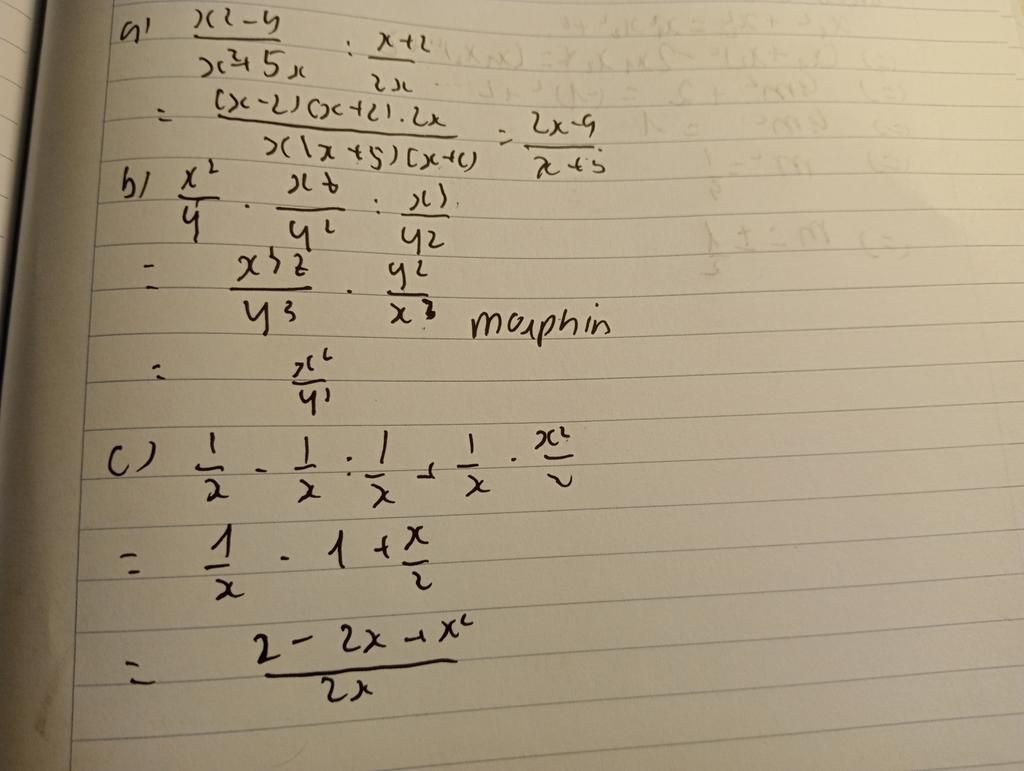 a) \frac{x^2-4}{x^2+5x} : \frac{x+2}{2x}
= \frac{(x-2)(x+2).2x}{x(x+5)(x+2)} = \frac{2x-4}{x+5}
b) \frac{x^2}{y} . \frac{xz}{y^2} : \frac{x^3}{y^2}
= \frac{x^3z}{y^3} . \frac{y^2}{x^3}
morphin
c) \frac{1}{x} - \frac{1}{x} : \frac{1}{x} + \frac{1}{x} . \frac{x^2}{2}
= \frac{1}{x} - 1 + \frac{x}{2}
= \frac{2-2x+x^2}{2x}